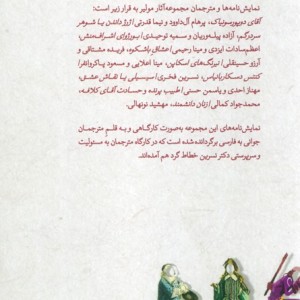 نمایش‌نامه‌ها و مترجمان مجموعه‌آثار مولیر به قرار زیر است:
آقای دوپورسونیاک، پرهام آل‌داوود و نیما قدرتی/ ژرژ داندن یا شوهر
سردرگم، آزاده پیله‌وریان و سمیه توحیدی/ بورژوای اشراف‌منش،
اعظم‌سادات ایزدی و مینا رحیمی/ عشاق باشکوه، فریده مشتاقی و
آرزو حسینقلی/ نیرنگ‌های اسکاپن، مینا اعلایی و مسعود پاکروانفر/
کنتس دسکاربانیاس، نسرین فخری/ سیسیلی یا نقاش عشق،
مهناز احدی و یاسمن حسنی/ طبیب پرنده و حسادت آقای کلافه،
محمدجواد کمالی/ زنان دانشمند، مهشید نونهالی.
نمایش‌نامه‌های این مجموعه به‌صورت کارگاهی و به قلم مترجمان
جوانی به فارسی برگردانده شده است که در کارگاه مترجمان به مسئولیت
و سرپرستی دکتر نسرین خطاط گرد هم آمده‌اند.